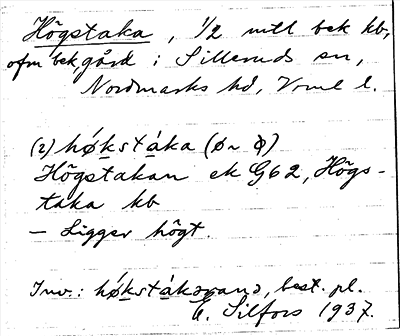 Högstaka, 1/2 mtl bek kb,
ofm bekgård i Silleruds sn,
Nordmarks hd, Vrml l.
(2) høkstáka (ø~
Högstakan ek G62, Högs-
taka kb
– Ligger högt.
Inv.: best. pl.
E. Silfors 1937.